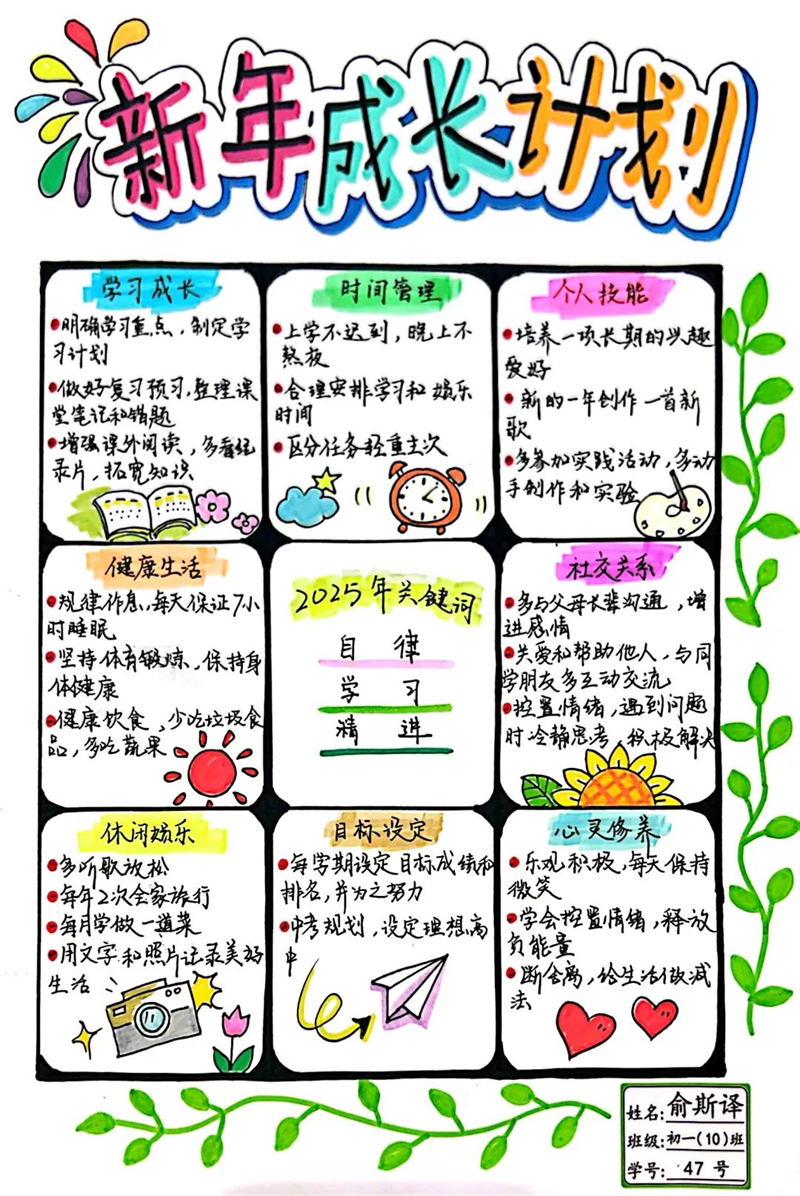 新年成长计划
学习成长
明确学习重点，制定学
习计划
做好复习预习,整理课
堂笔记和错题
增强课外阅读，多看纪
录片，拓宽知识
时间管理
上学不迟到，晚上不
熬夜
合理安排学习和娱乐
时间
区分任务轻重主次
个人技能
培养一项长期的兴趣
爱好
新的一年创作一首新
歌
多参加实践活动，多动
手创作和实验
健康生活
规律作息,每天保证7小
时睡眠
坚持体育锻炼、保持身
体健康
健康饮食，少吃垃圾食
品，多吃蔬果
2025年关键词
自 律
学 习
精 进
社交关系
多与父母长辈沟通，增
进感情
关爱和帮助他人，与同
学朋友多互动交流
控置情绪，遇到问题
时冷静思考，积极解决
休闲娱乐
多听歌放松
每年2次全家旅行
每月学做一道菜
用文字和照片记录美好
生活
目标设定
每学期设定目标成绩和
排名，并为之努力
中考规划，设定理想高
中
心灵修养
乐观积极，每天保持
微笑
学会控置情绪，释放
负能量
断舍离，给生活做减
法
姓名:俞斯译
班级:初一(10)班
学号: 47 号